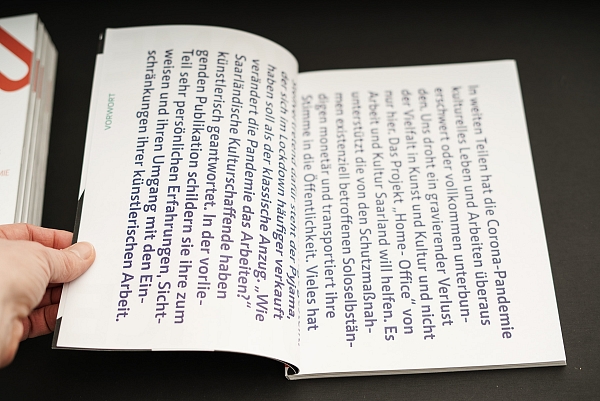 VORWORT
In weiten Teilen hat die Corona-Pandemie
kulturelles Leben und Arbeiten überaus
erschwert oder vollkommen unterbun-
den. Uns droht ein gravierender Verlust
der Vielfalt in Kunst und Kultur und nicht
nur hier. Das Projekt „Home- Office“ von
Arbeit und Kultur Saarland will helfen. Es
unterstützt die von den Schutzmaßnah-
men existenziell betroffenen Soloselbstän-
digen monetär und transportiert ihre
Stimme in die Öffentlichkeit. Vieles hat
steht der Pyjama,
der sich im Lockdown häufiger verkauft
haben soll als der klassische Anzug. „Wie
verändert die Pandemie das Arbeiten?“
Saarländische Kulturschaffende haben
künstlerisch geantwortet. In der vorlie-
genden Publikation schildern sie ihre zum
Teil sehr persönlichen Erfahrungen, Sicht-
weisen und ihren Umgang mit den Ein-
schränkungen ihrer künstlerischen Arbeit.